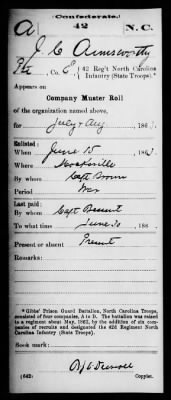 (Confederate.)
A 42 N.C.
J. C. Ainsworthy
Pvt, Co. E, 42 Reg't North Carolina
Infantry (State Troops).*
Appears on
Company Muster Roll
of the organization named above,
for July & Aug, 186
Enlisted:
When June 15, 186
Where Mocksville
By whom Capt Brown
Period War
Last paid:
By whom Capt
To what time June 30, 186
Present or absent Present
Remarks:
* Gibbs' Prison Guard Battalion, North Carolina Troops,
consisted of four companies, A to D. The battalion was raised
to a regiment about May, 1862, by the addition of six com-
panies of recruits and designated the 42d Regiment North
Carolina Infantry (State Troops).
Book mark:
(642) Copyist.